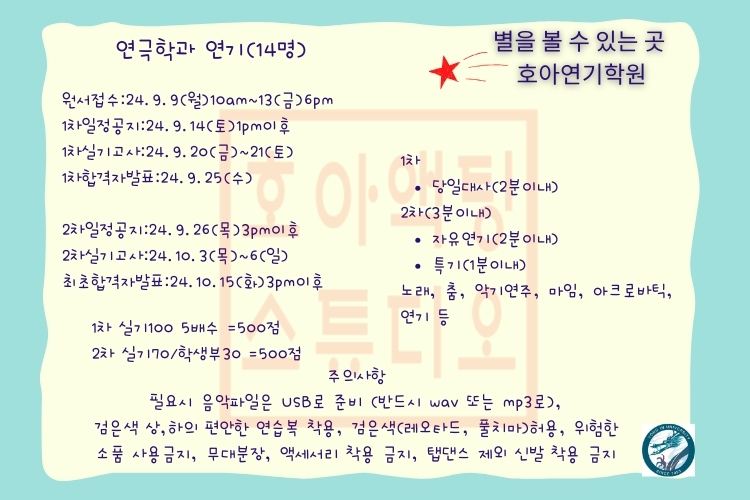 연극학과 연기(14명)
별을 볼 수 있는 곳
호아연기학원
원서접수:24. 9. 9(월)10am~13(금)6pm
1차일정공지:24. 9. 14(토)1pm이후
1차실기고사:24. 9. 20(금)~21(토)
1차합격자발표:24. 9. 25(수)
2차일정공지:24. 9. 26(목)3pm이후
2차실기고사:24. 10. 3(목)~6(일)
최초합격자발표:24. 10. 15(화)3pm이후
1차 실기100 5배수 =500점
2차 실기70/학생부30 =500점
1차
• 당일대사(2분이내)
2차(3분이내)
• 자유연기(2분이내)
• 특기(1분이내)
노래, 춤, 악기연주, 마임, 아크로바틱,
연기 등
주의사항
필요시 음악파일은 USB로 준비 (반드시 wav 또는 mp3로),
검은색 상,하의 편안한 연습복 착용, 검은색(레오타드, 풀치마)허용, 위험한
소품 사용금지, 무대분장, 액세서리 착용 금지, 탭댄스 제외 신발 착용 금지
호아액팅
스튜디오